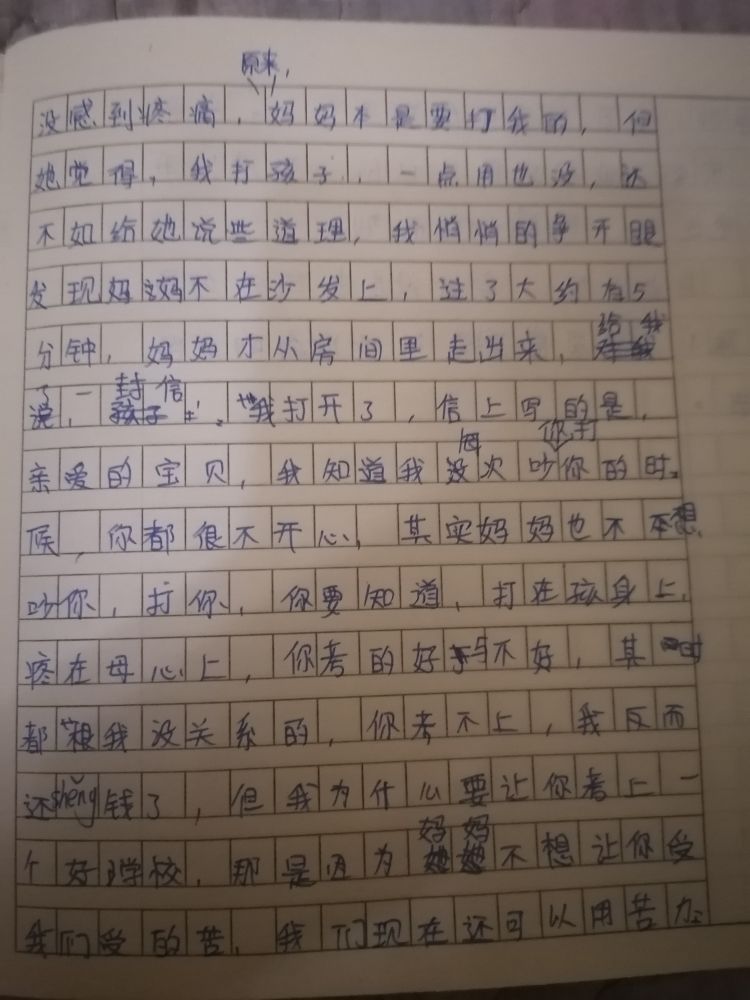 原来,
没感到疼痛,妈妈不是要打我的,但
她觉得,我打孩子,一点用也没,还
不如给她说些道理,我悄悄的争开眼
发现妈妈不在沙发上,过了大约有5
分钟,妈妈才从房间里走出来,给我
了一封信,我打开了,信上写的是,
亲爱的宝贝,我知道我每次吵你打你的时
候,你都很不开心,其实妈妈也不想
吵你,打你,你要知道,打在孩身上,
疼在母心上,你考的好与不好,其时
都跟我没关系的,你考不上,我反而
还shěng钱了,但我为什么要让你考上一
个好学校,那是因为妈妈不想让你受
我们受的苦,我们现在还可以用苦力